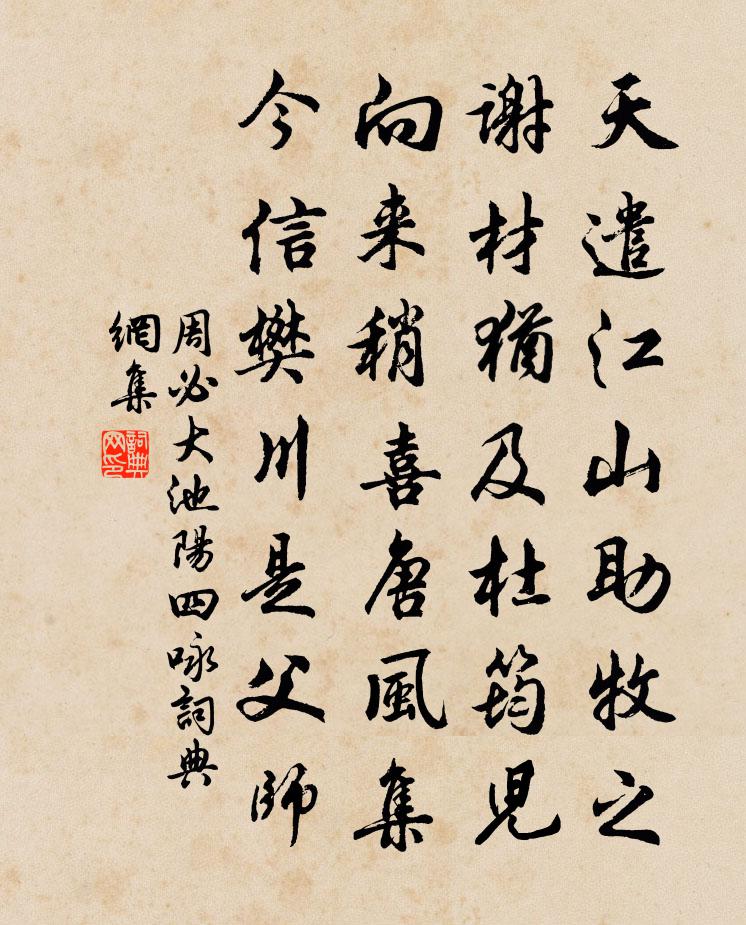 天遣江山助牧之
谢材猶及杜筠児
向来稍喜唐風集
今信樊川是父師
周必大池陽四咏詞典
網集
詞典
网印